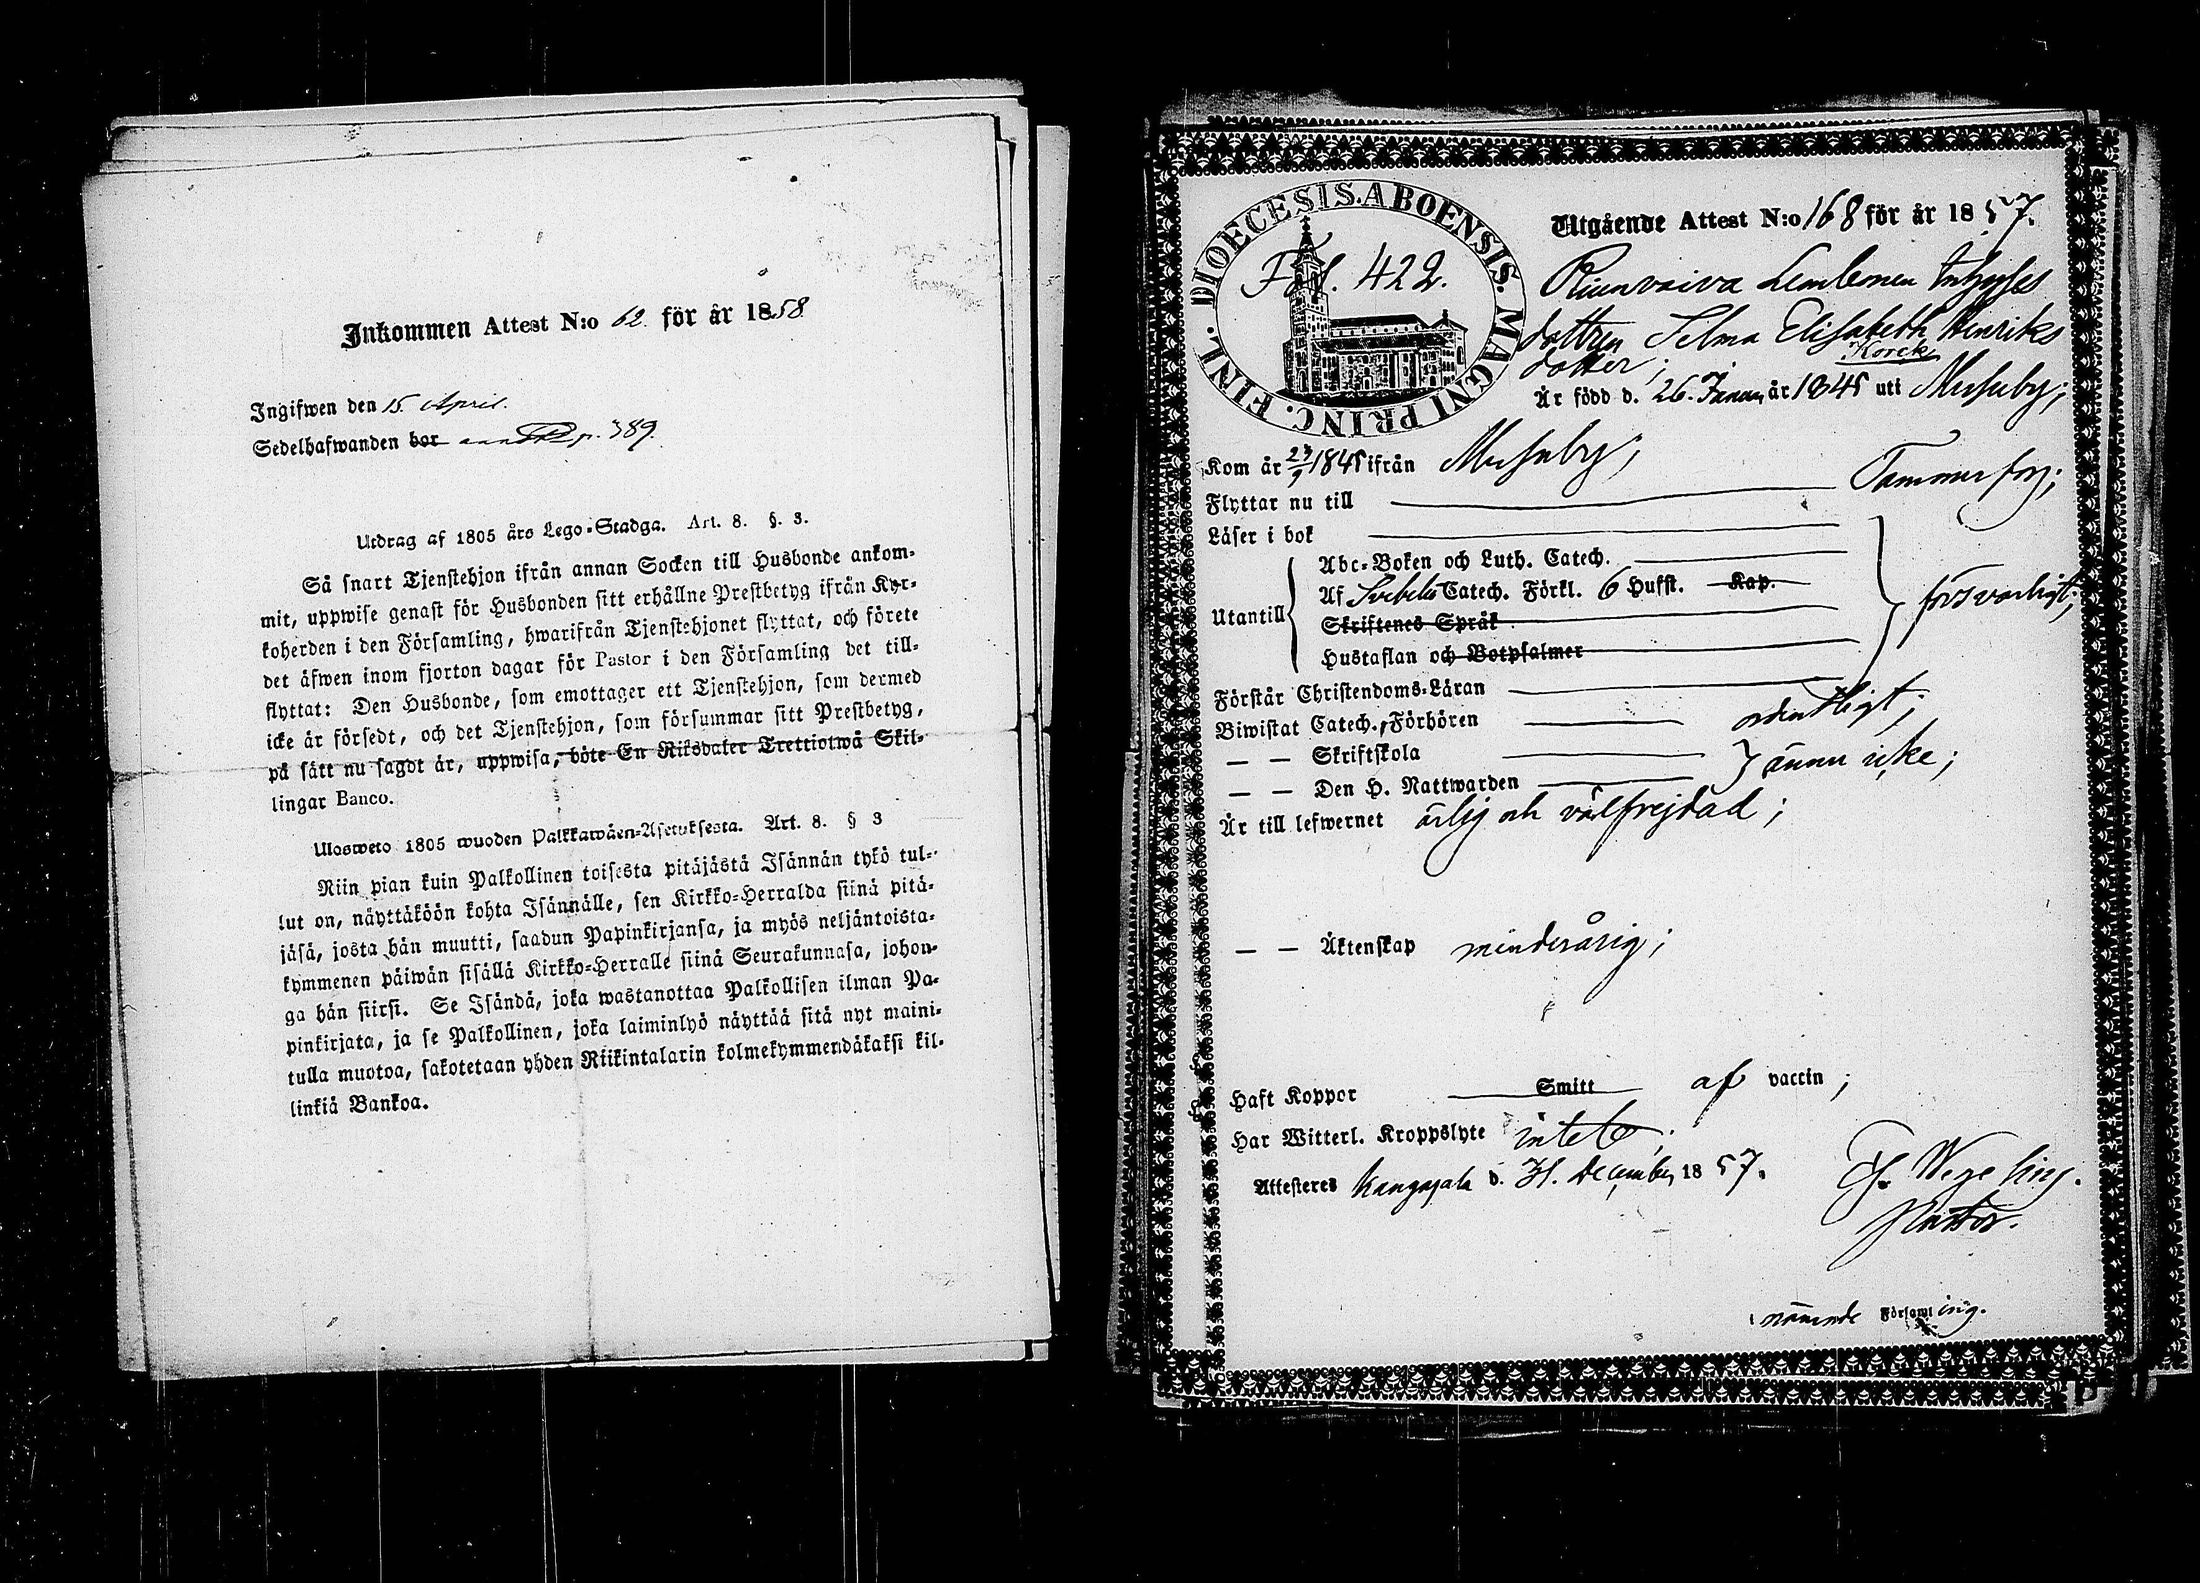 Inkommen Attest N:o 62. för år 1858
Ingifwen den 15. April.
Sedelhafwanden bor p. 389.
Utdrag af 1805 års Lego-Stadga. Art. 8. §. 3.
Så snart Tjenstehjon ifrån annan Socken till Husbonde ankom-
mit, uppwise genast för Husbonden sitt erhållne Prestbetyg ifrån Kyr-
koherden i den Församling, hwarifrån Tjenstehjonet flyttat, och förete
det äfwen inom fjorton dagar för Pastor i den Församling det till-
flyttat: Den Husbonde, som emottager ett Tjenstehjon, som dermed
icke är försedt, och det Tjenstehjon, som försummar sitt Prestbetyg,
på sätt nu sagdt är, uppwisa, böte En Riksdaler Trettiotwå Skil-
lingar Banco.
Ulosweto 1805 wuoden Palkkawäen-Asetuksesta. Art. 8. § 3
Niin pian kuin Palkollinen toisesta pitäjästä Isännän tykö tul-
lut on, näyttäköön kohta Isännälle, sen Kirkko-Herralda siinä pitä-
jäsä, josta hän muutti, saadun Papinkirjansa, ja myös neljäntoista-
kymmenen päiwän sisällä Kirkko-Herralle siinä Seurakunnasa, johon-
ga hän siirsi. Se Isändä, joka wastanottaa Palkollisen ilman Pa-
pinkirjata, ja se Palkollinen, joka laiminlyö näyttää sitä nyt maini-
tulla muotoa, sakotetaan yhden Riikintalarin kolmekymmendäkaksi kil-
linkiä Bankoa.
DIOECESIS. ABOENSIS. MAGNI PRINC. FINL.
Fol. 422.
Utgående Attest N:o 168 för år 1857.
Inhyses
dottren Selma Elisabeth Henriks
dotter; Korck
Är född d. 26. Januari år 1845 uti Messuby;
Kom år 1845 ifrån Messuby;
Flyttar nu till Tammerfors;
Läser i bok
Utantill
Abc-Boken och Luth. Catech.
Af Svebelii Catech. Förkl. 6 Hufst. Kap.
Skriftenes Språk
Hustaflan och Botpsalmer
försvarligt;
Förstår Christendoms-Läran
Biwistat Catech., Förhören ordentligt;
— — Skriftskola
— — Den H. Nattwarden ännu icke;
Är till lefwernet ärlig och välfrejdad;
— — Äktenskap minderårig;
Haft Koppor Smitt af vaccin;
Har Witterl. Kroppslyte intet;
Attesteres Kangasala d. 31. December 1857.
Pastor.
i nämnde Församling.